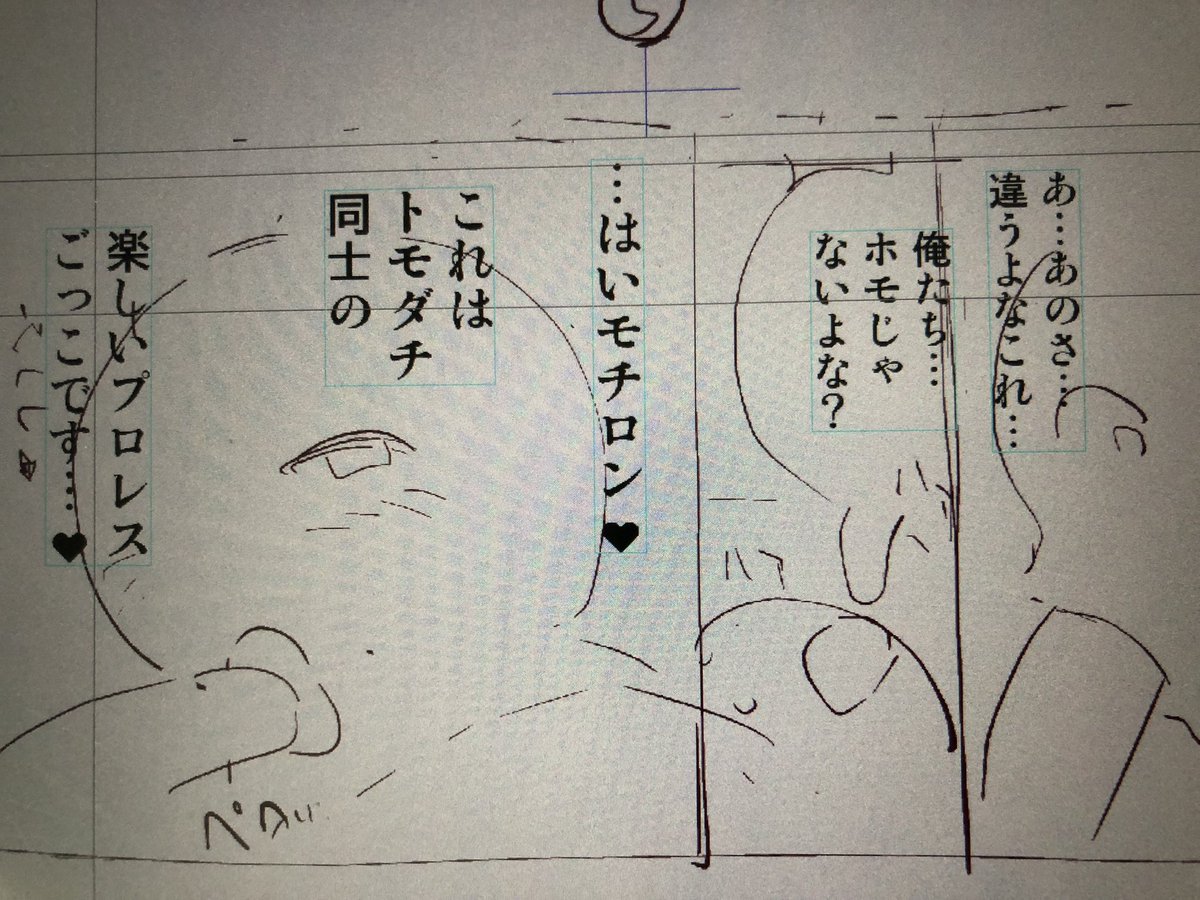 あ…あのさ…
違うよなこれ…
俺たち…
ホモじゃ
ないよな?
ハァ
ハァ
…はいモチロン♥
これは
トモダチ
同士の
楽しいプロレス
ごっこです…♥
ペロッ